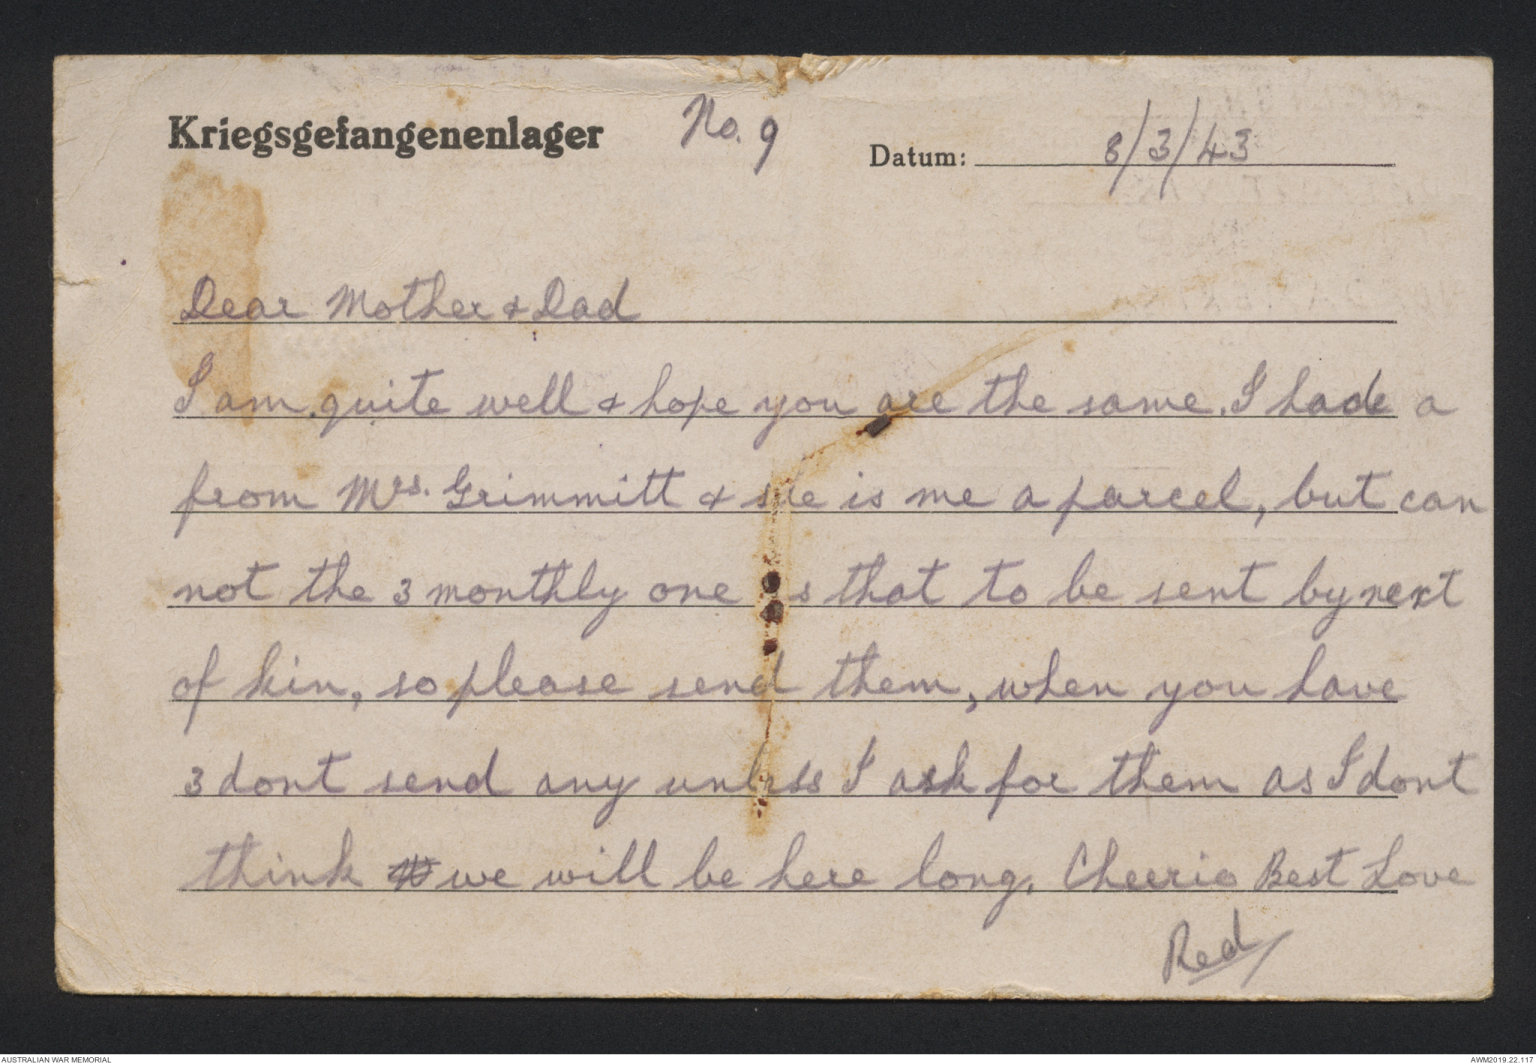 Kriegsgefangenenlager No. 9 Datum: 8/3/43
Dear Mother & Dad
I am quite well & hope you are the same. I had a
from Mrs. Grimmitt & she is me a parcel, but can
not the 3 monthly one s that to be sent by next
of kin, so please send them, when you have
3 dont send any unless I ask for them as I dont
think we will be here long. Cheerio Best Love
Red
AUSTRALIAN WAR MEMORIAL AWM2019.22.117